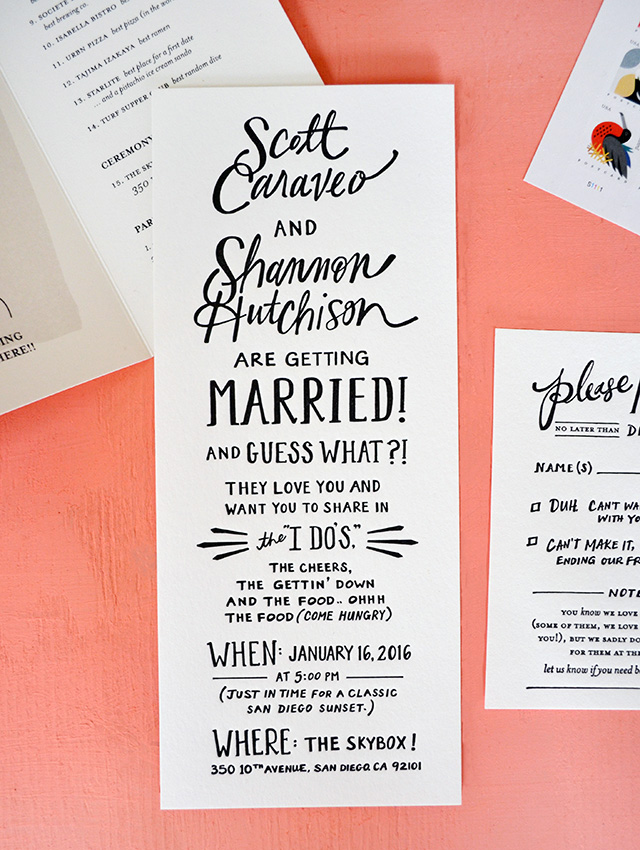 9. SOCIETE
best brewing co.
10. ISABELLA BISTRO
11. URBN PIZZA best pizza (in the
12. TAJIMA IZAKAYA best ramen
13. STARLITE best place for a first date
... and a pistachio ice cream sando
14. TURF SUPPER CLUB best random dive
CEREMONY
15. THE SKY
350
PAR
HERE!!
Scott
Caraveo
AND
Shannon
Hutchison
ARE GETTING
MARRIED!
AND GUESS WHAT?!
THEY LOVE YOU AND
WANT YOU TO SHARE IN
the "I DO'S,"
THE CHEERS,
THE GETTIN' DOWN
AND THE FOOD.. OHHH
THE FOOD (COME HUNGRY)
WHEN: JANUARY 16, 2016
AT 5:00 PM
(JUST IN TIME FOR A CLASSIC
SAN DIEGO SUNSET.)
WHERE: THE SKYBOX!
350 10TH AVENUE, SAN DIEGO, CA 92101
please
NO LATER THAN
NAME(S)
DUH CAN'T
WITH
CAN'T MAKE IT,
ENDING OUR
NOTE
YOU know WE LOVE
(SOME OF THEM, WE LOVE
YOU!), BUT WE SADLY
FOR THEM AT
let us know if you need